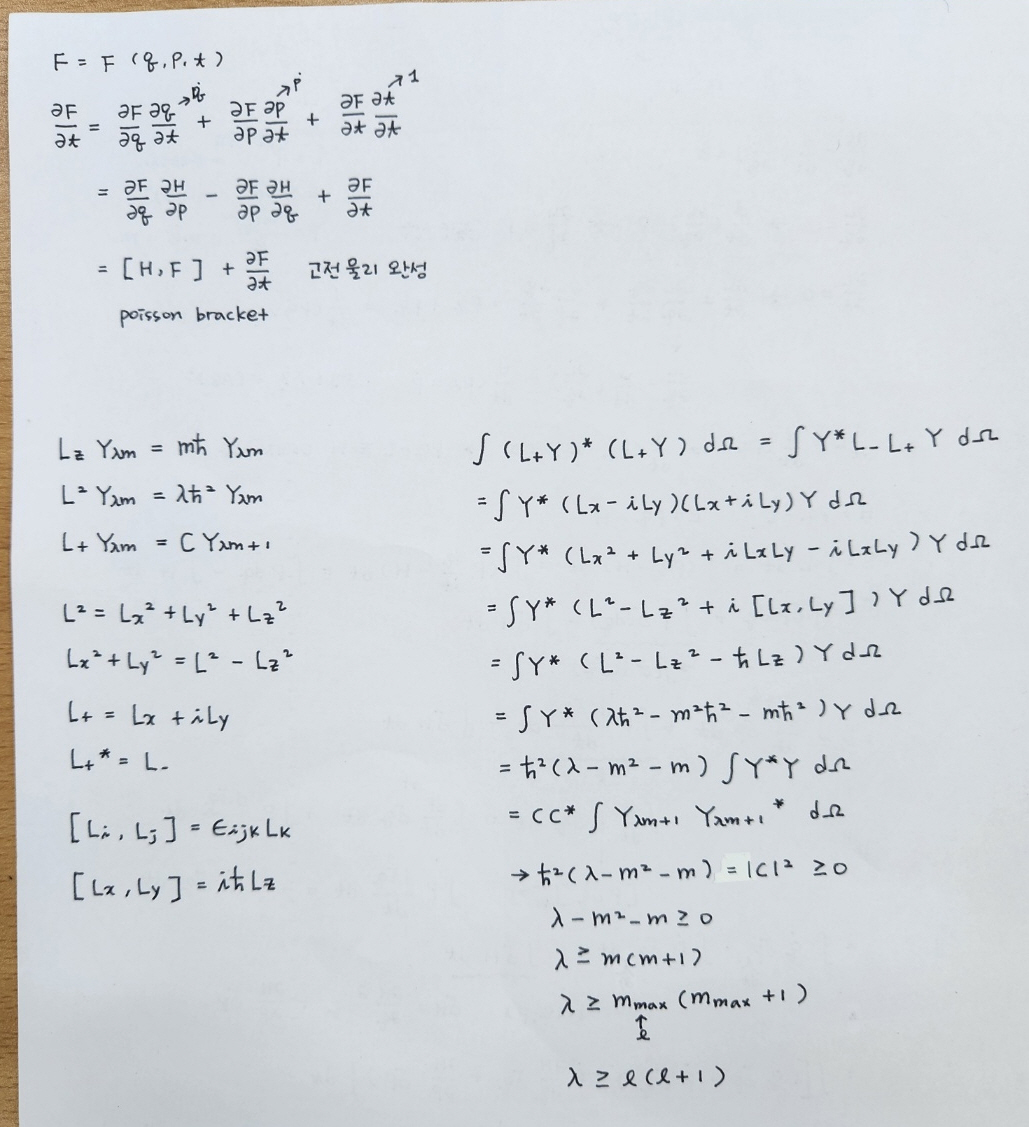 F = F (q, p, t)
∂F/∂t = ∂F/∂q ∂q/∂t → q̇ + ∂F/∂p ∂p/∂t → ṗ + ∂F/∂t ∂t/∂t → 1
= ∂F/∂q ∂H/∂p - ∂F/∂p ∂H/∂q + ∂F/∂t
= [H, F] + ∂F/∂t 고전 물리 완성
poisson bracket
Lz Yλm = mħ Yλm
L² Yλm = λħ² Yλm
L+ Yλm = C Yλm+1
L² = Lx² + Ly² + Lz²
Lx² + Ly² = L² - Lz²
L+ = Lx + iLy
L+* = L-
[Li, Lj] = ϵijk Lk
[Lx, Ly] = iħ Lz
∫ (L+Y)* (L+Y) dΩ = ∫ Y* L- L+ Y dΩ
= ∫ Y* (Lx - iLy)(Lx + iLy) Y dΩ
= ∫ Y* (Lx² + Ly² + iLxLy - iLxLy) Y dΩ
= ∫ Y* (L² - Lz² + i [Lx, Ly]) Y dΩ
= ∫ Y* (L² - Lz² - ħLz) Y dΩ
= ∫ Y* (λħ² - m²ħ² - mħ²) Y dΩ
= ħ² (λ - m² - m) ∫ Y*Y dΩ
= CC* ∫ Yλm+1 Yλm+1* dΩ
→ ħ² (λ - m² - m) = |C|² ≥ 0
λ - m² - m ≥ 0
λ ≥ m(m+1)
λ ≥ mmax (mmax + 1)
↑
ℓ
λ ≥ ℓ(ℓ+1)